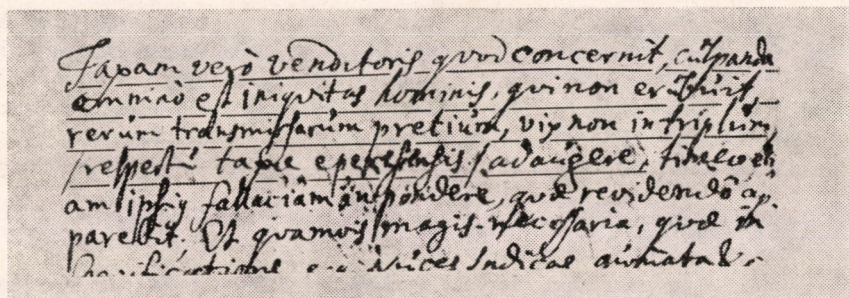 Taxam verò venditoris quod concernit, culpanda
omninò est iniquitas hominis, qui non erubuit
rerum transmissarum pretium, vix non in triplum,
adaugere, timeo eti
am ipsius fallaciam in pondere, quæ revidendô ap,
parebit. Et quamvis magis necessaria, quæ in
nuces Indicae